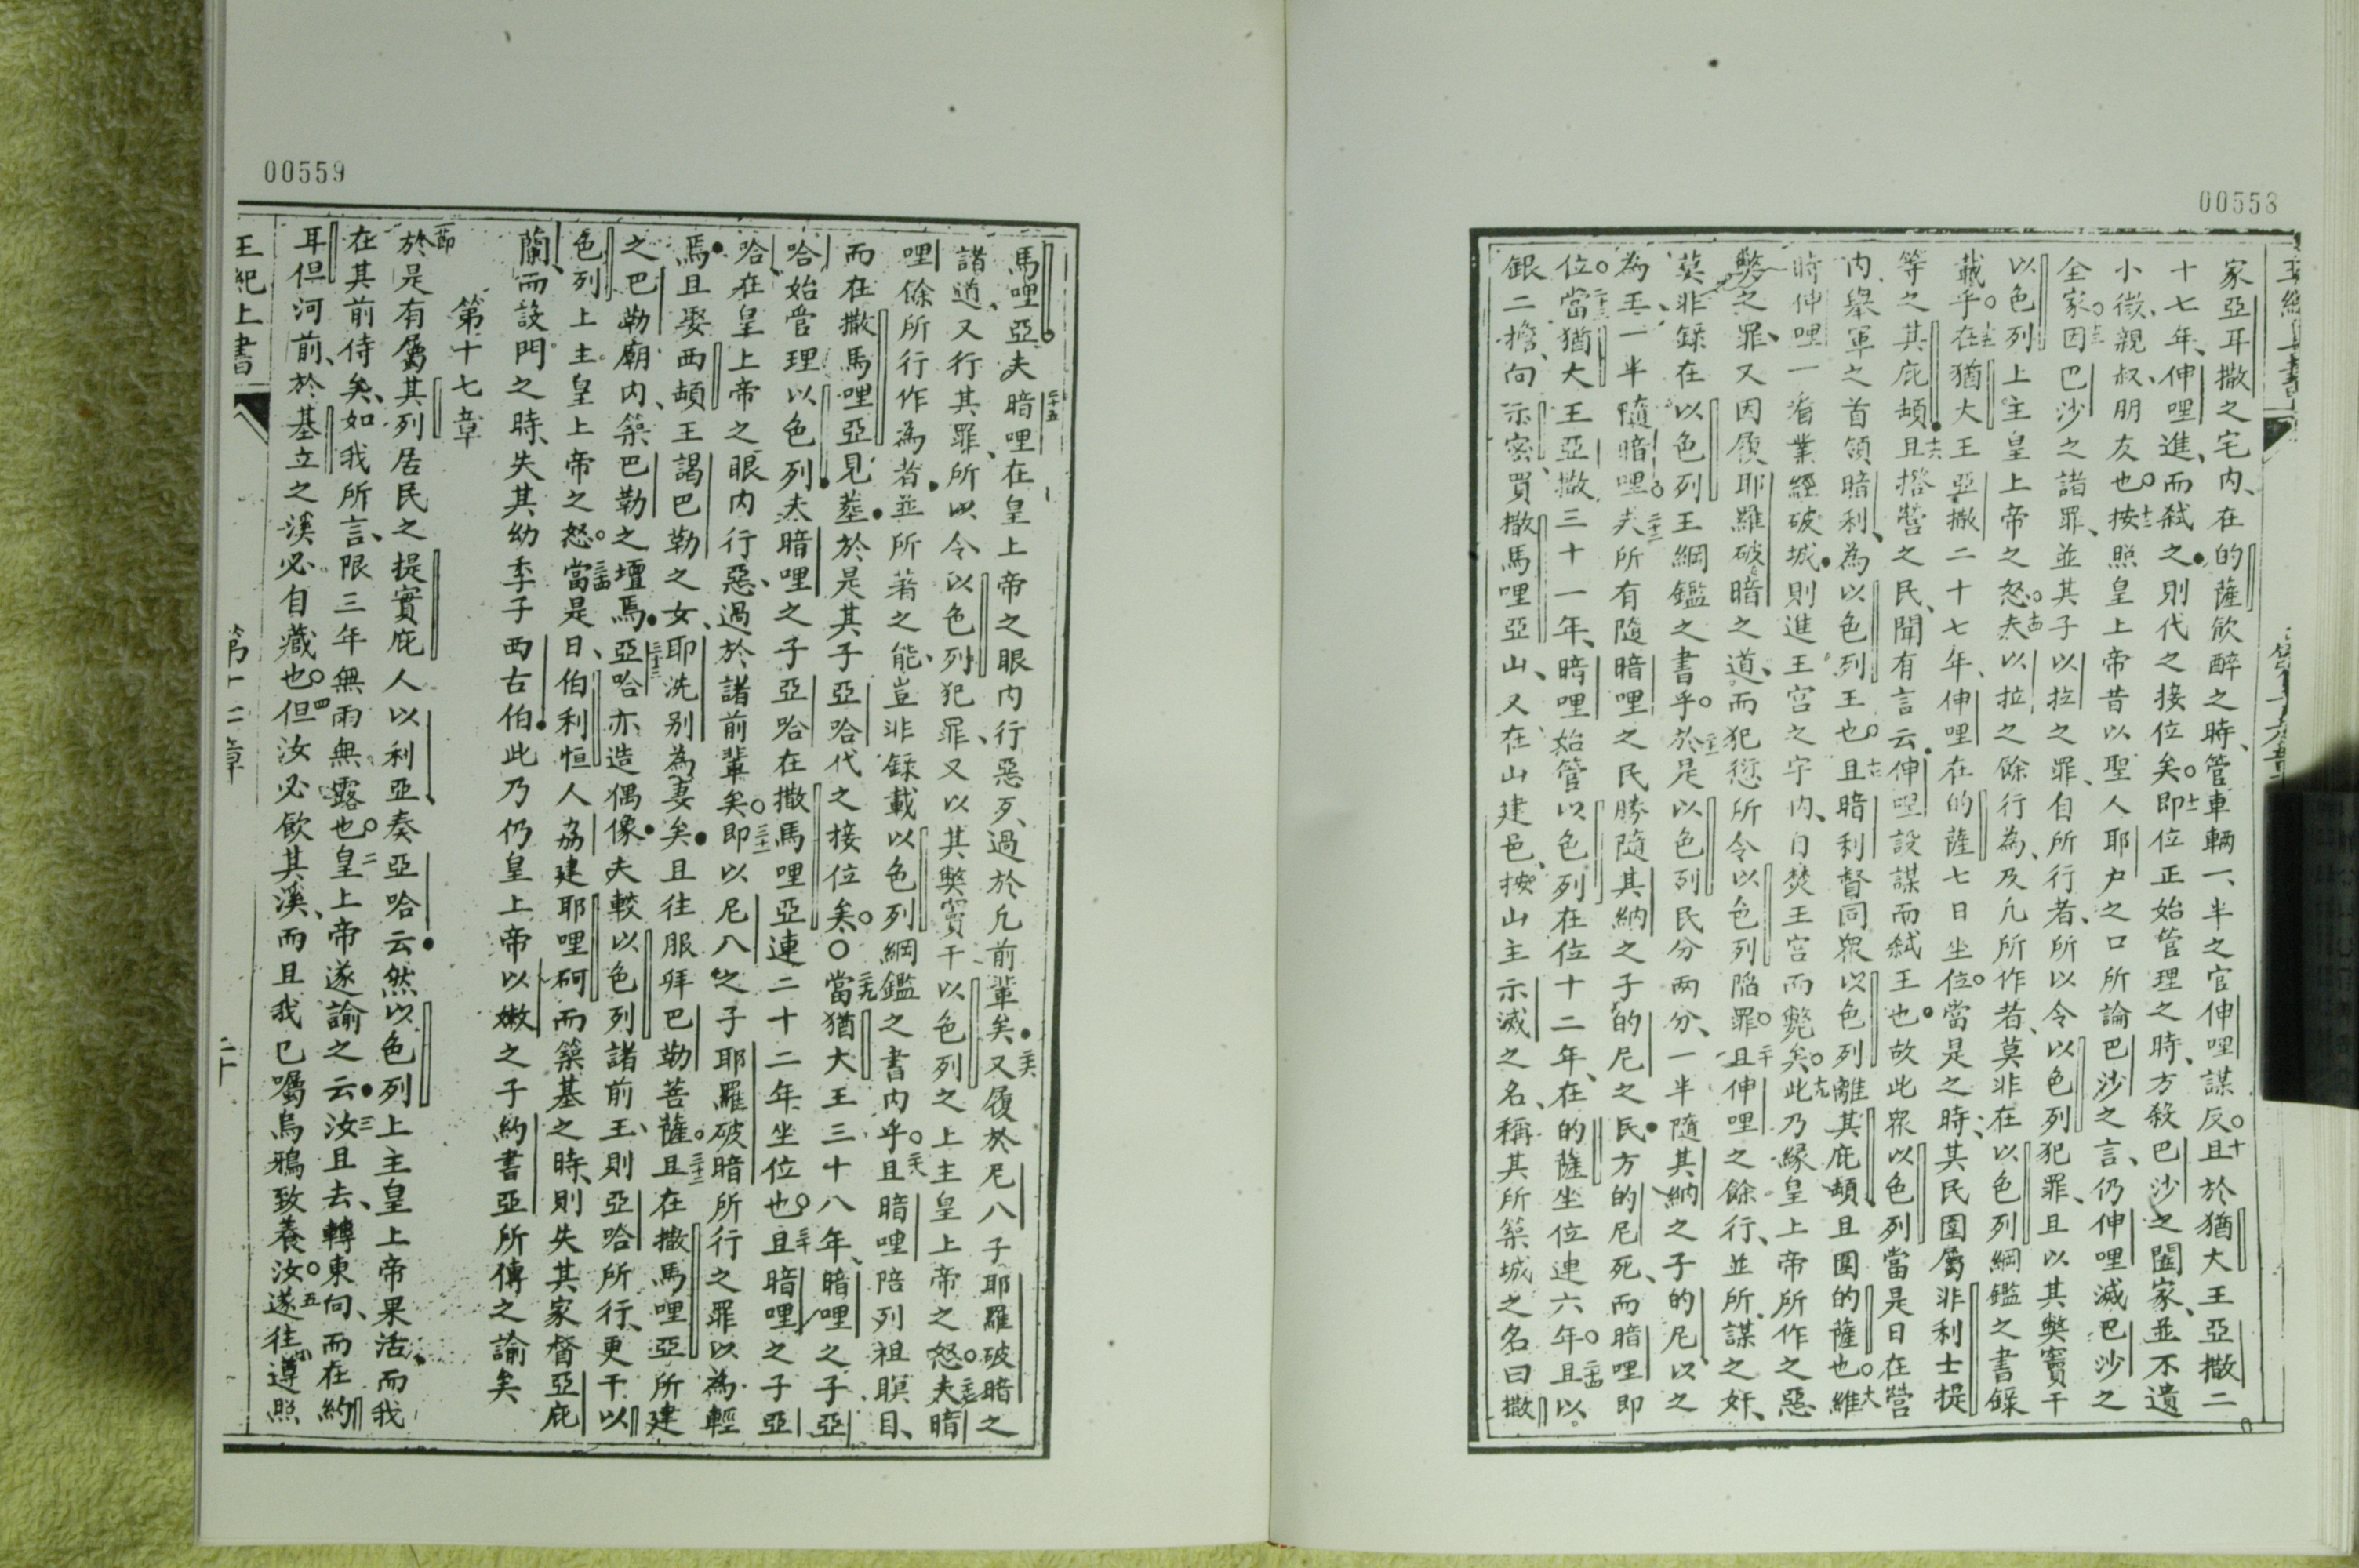 00558
家亞耳撒之宅內、在的薩飲醉之時、管車輛一半之官伸哩謀反○十且於猶大王亞撒二
十七年、伸哩進、而弒之●則代之接位矣○十一即位正始管理之時、方殺巴沙之闔家、並不遺
小微、親叔、朋友也○十二按照皇上帝昔以聖人耶户之口所論巴沙之言、仍伸哩滅巴沙之
全家○十三因巴沙之諸罪、並其子以拉之罪、自所行者、所以令以色列犯罪、且以其獘竇干
以色列上主皇上帝之怒○十四夫以拉之餘行為、及凡所作者、莫非在以色列綱鑑之書錄
載乎○十五在猶大王亞撒二十七年、伸哩在的薩七日坐位○當是之時、其民圍屬非利士提
等之其庇頡●十六且撘營之民、聞有言云●伸哩設謀而弒王也●故此眾以色列當是日在營
內、舉軍之首領暗利、為以色列王也○十七且暗利督同眾以色列離其庇頡、且圍的薩也○十八維
時伸哩一看業經破城●則進王宮之宇內、自焚王宮而斃矣○十九此乃緣皇上帝所作之惡
獘之罪、又因履耶羅破暗之道、而犯愆所令以色列陷罪○二十且伸哩之餘行、並所謀之奸、
莫非錄在以色列王綱鑑之書乎○二十一於是以色列民分両分、一半隨其納之子的尼以之
為王、一半隨暗哩○二十二夫所有隨暗哩之民勝隨其納之子的尼之民●方的尼死、而暗哩即
位○二十三當猶大王亞撒三十一年、暗哩始管以色列在位十二年、在的薩坐位連六年○二十四且以
銀二擔、向示密買撒馬哩亞山、又在山建邑、按山主示滅之名、稱其所築城之名曰撒
00559
馬哩亞○二十五夫暗哩在皇上帝之眼內行惡歹、過於凡前輩矣●二十六又履於尼八子耶羅破暗之
諸道、又行其罪、所以令以色列犯罪、又以其獘竇干以色列之上主皇上帝之怒○二十七夫暗
哩餘所行作為者●並所著之能、豈非錄載以色列綱鑑之書內乎○二十八且暗哩陪列祖瞑目、
而在撒馬哩亞見塟●於是其子亞哈代之接位矣○○二十九當猶大王三十八年、暗哩之子亞
哈始管理以色列●夫暗哩之子亞哈在撒馬哩亞連二十二年坐位也○三十且暗哩之子亞
哈在皇上帝之眼內行惡、過於諸前輩矣○三十一即以尼八之子耶羅破暗所行之罪以為輕
焉●且娶西頡王謁巴勒之女、耶洗別為妻矣●且往服拜巴勒菩薩○三十二且在撒馬哩亞所建
之巴勒廟內、築巴勒之壇焉●三十三亞哈亦造偶像●夫較以色列諸前王、則亞哈所行、更干以
色列上主皇上帝之怒○三十四當是日、伯利恒人㓭建耶哩砢而築基之時、則失其家督亞庇
蘭、而設門之時、失其幼季子西古伯●此乃仍皇上帝以嫩之子約書亞所傳之諭矣
第十七章
一節於是有屬其列居民之提實庇人以利亞、奏亞哈云●然以色列上主皇上帝果活、而我
在其前侍矣、如我所言、限三年無雨無露也○二皇上帝遂諭之云●三汝且去、轉東向、而在約
耳但河前、於基立之溪必自藏也○四但汝必飲其溪、而且我已囑烏鴉致養汝○五遂往遵照
王紀上書